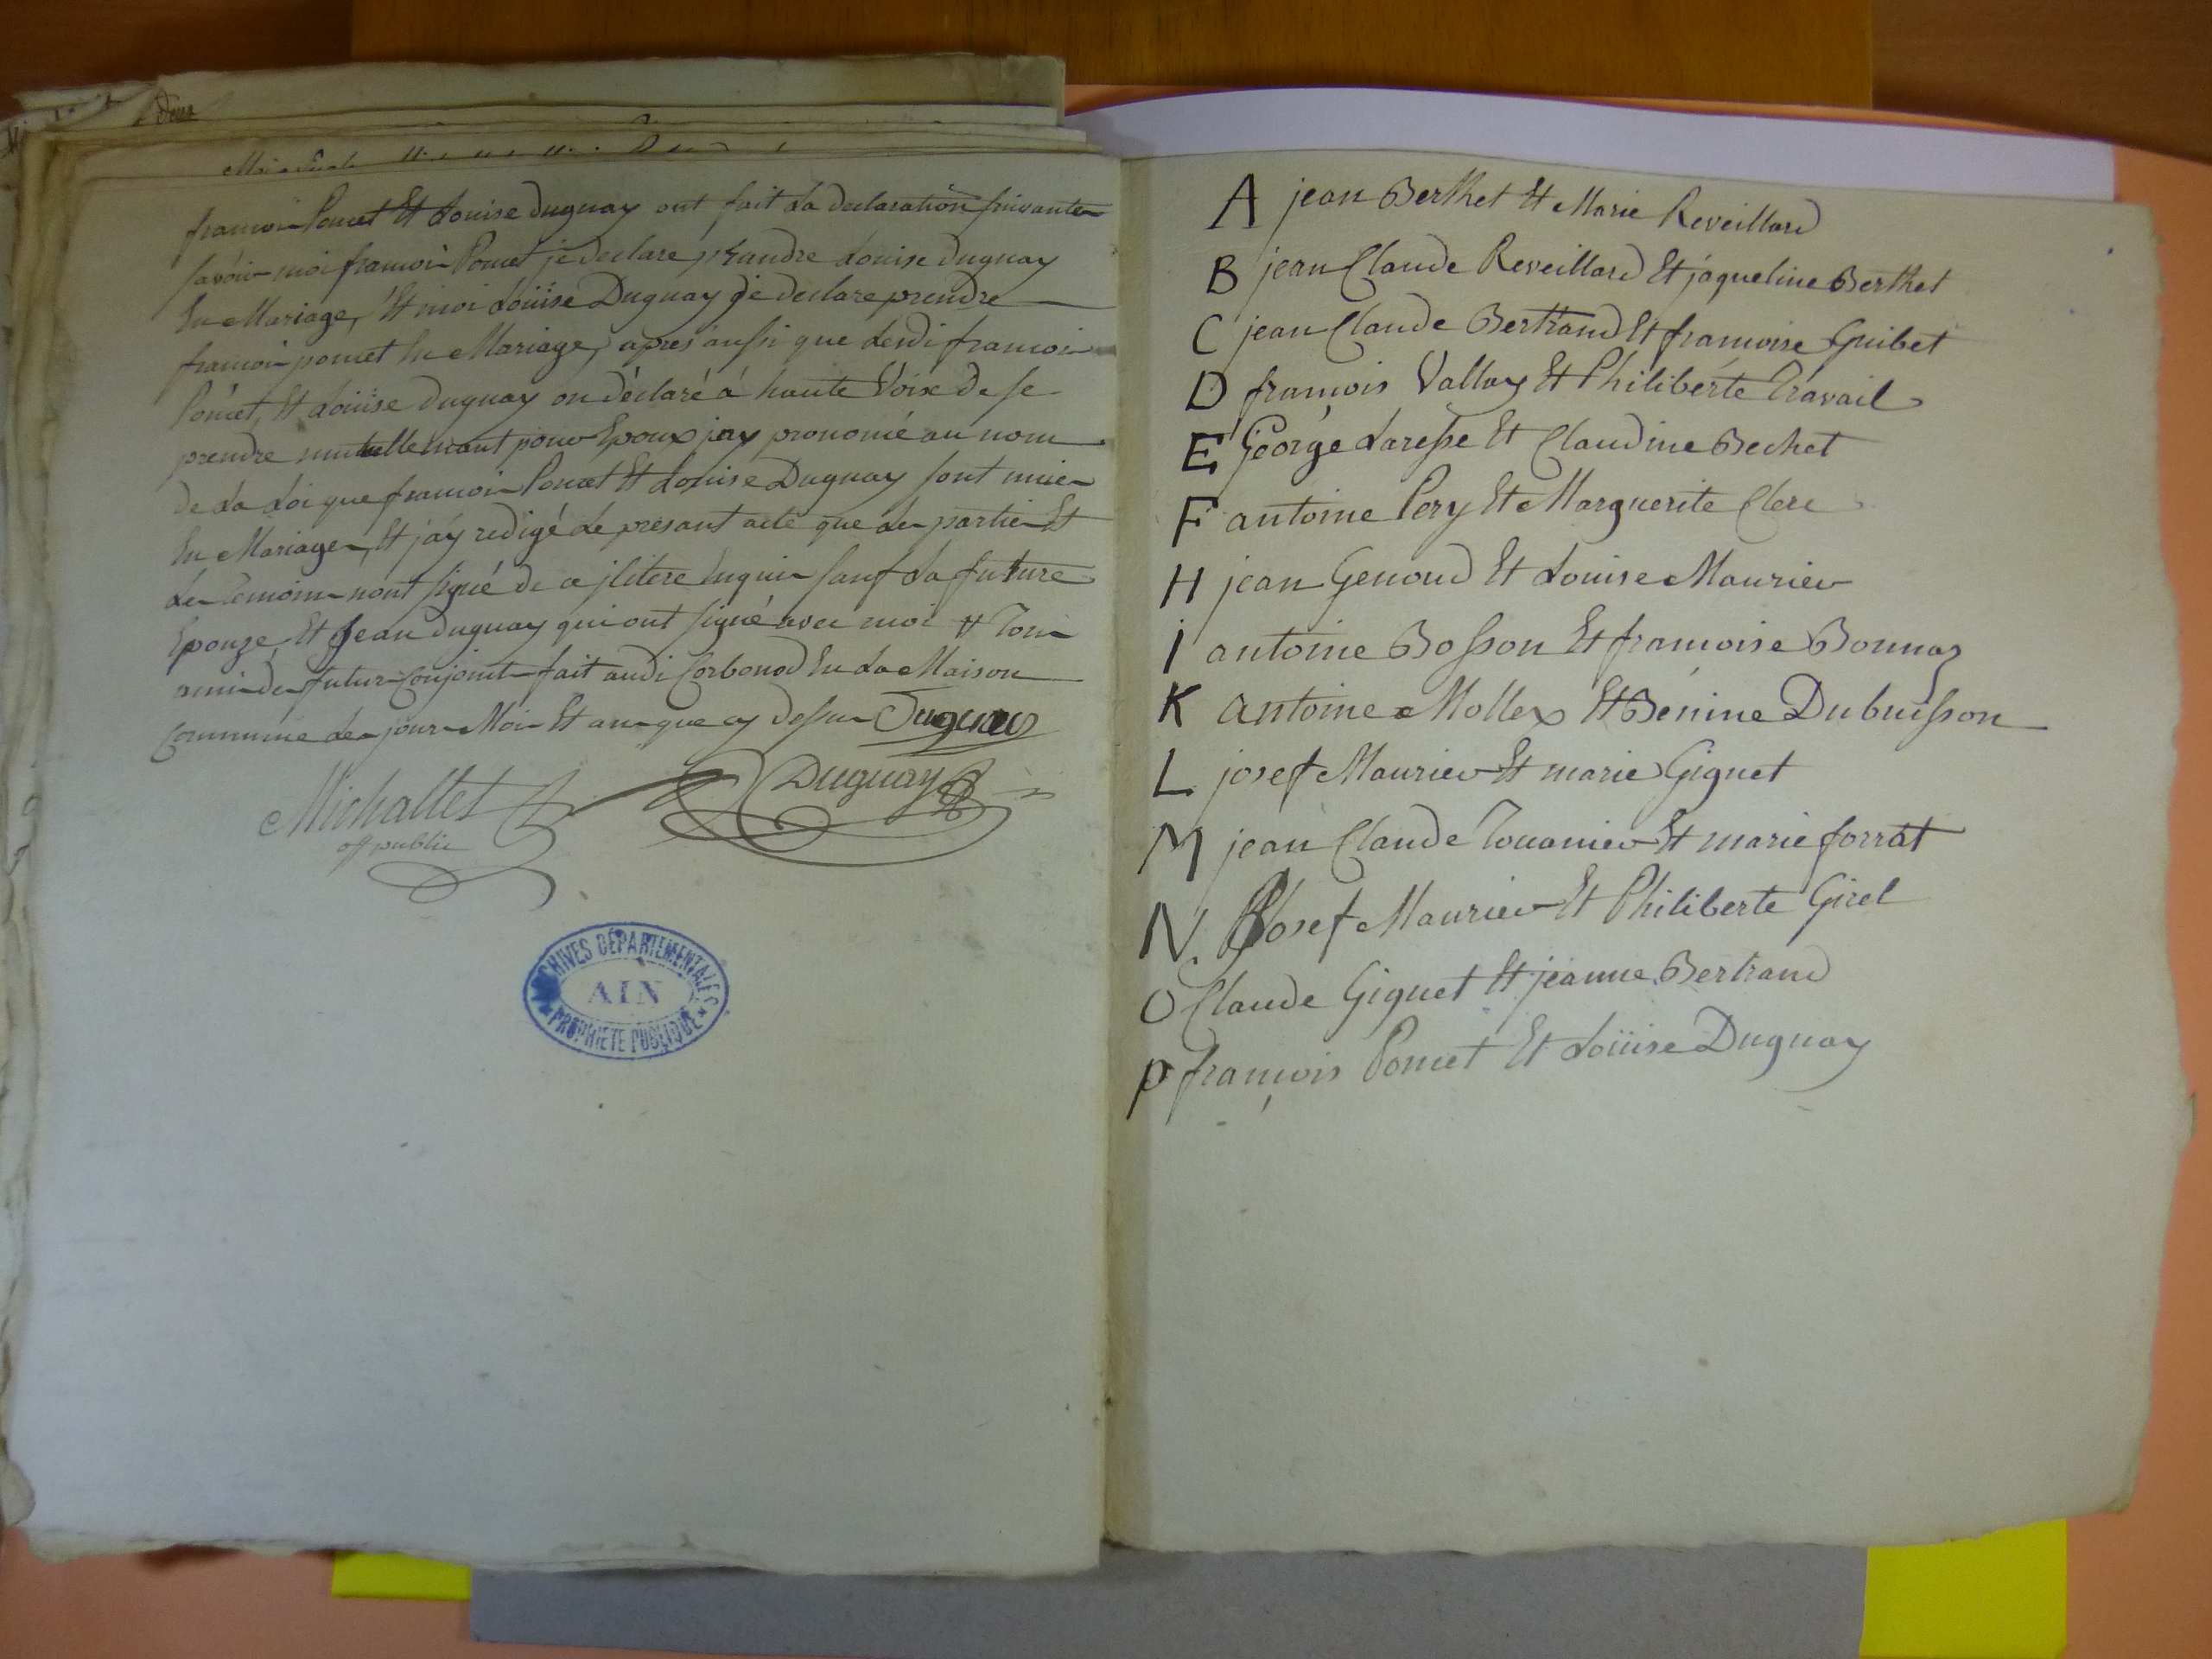 françois Poncet Et Louise Duguay ont fait La declaration suivante
savoir moi françois Poncet je declare prandre Louise Duguay
En Mariage, Et moi Loüise Duguay je declare prendre
françois poncet En Mariage, après aussi que lesdi françois
Poncet, Et Loüise Duguay on déclaré á haute Voix de se
prendre mutuellemant pour Epoux jay prononcé au nom
de La Loi que françois Poncet Et Louise Duguay sont unie
En Mariage, Et j'ay redigé le présant acte que les parties Et
les Temoins n'ont signé de ce enquis sauf La future
Epouze, Et Jean Duguay qui ont signé avec moi # Tous
ami des futur Conjoint fait audi Corbonod En La Maison
Commune les jour Mois Et an que cy dessus Duguay
Duguay
Michallet
off public
ARCHIVES DÉPARTEMENTALES
AIN
PROPRIETE PUBLIQUE
A jean Berthet Et Marie Reveillard
B jean Claude Reveillard Et jaqueline Berthet
C jean Claude Bertrand Et françoise Guibet
D françois Vallay Et Philiberte Travail
E George Laresse Et Claudine Bechet
F antoine Pery Et Marguerite Clerc
H jean Genoud Et Louise Maurier
i antoine Bosson Et françoise Bonnaz
K antoine Mollex Et Bénine Dubuisson
L josef Maurier Et marie Giguet
M jean Claude Touanier Et marie forrat
N Josef Maurier Et Philiberte Girel
O Claude Giguet Et jeanne Bertrand
P françois Poncet Et Loüise Duguay